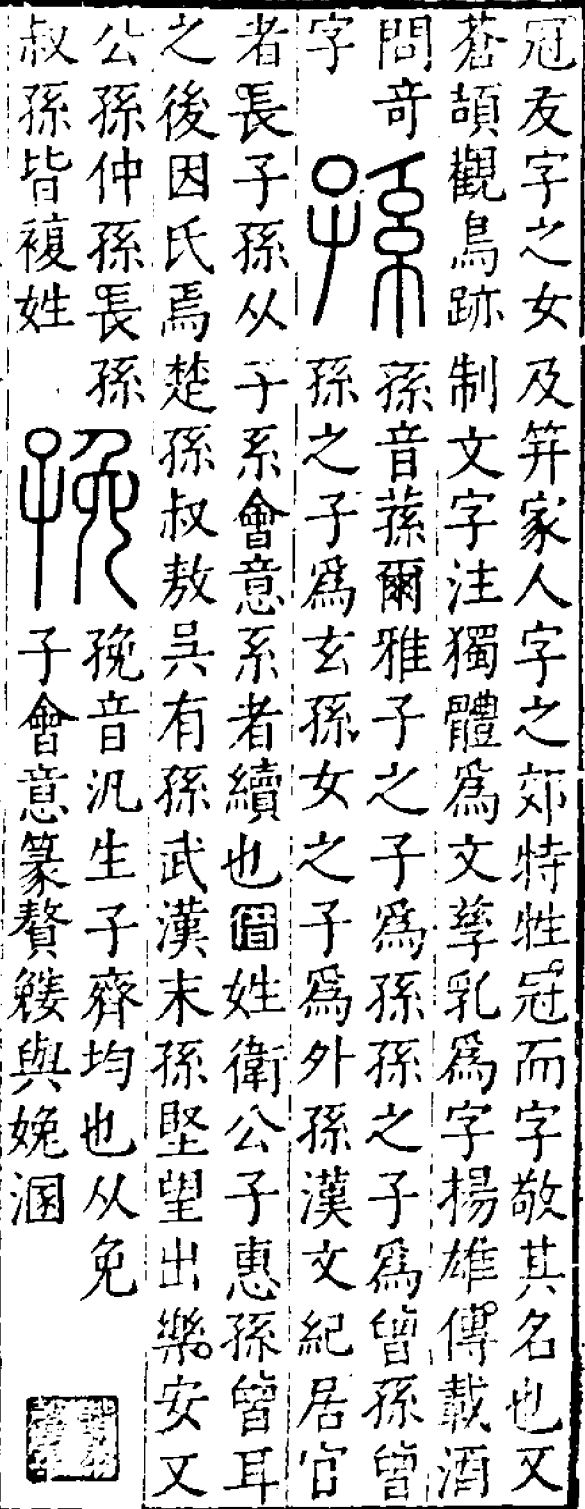 冠友字之女及笄家人字之郊特牲冠而字敬其名也又
蒼頡觀鳥跡制文字注獨體爲文孳乳爲字楊雄傳載酒
問奇
字
孫
孫音蓀爾雅子之子爲孫孫之子爲曾孫曾
孫之子爲玄孫女之子爲外孫漢文紀居官
者長子孫从子系會意系者續也借姓衛公子惠孫曾耳
之後因氏焉楚孫叔敖吳有孫武漢末孫堅望出樂安又
公孫仲孫長孫
叔孫皆複姓
㝃
㝃音汎生子齊均也从免
子會意篆贅與娩溷